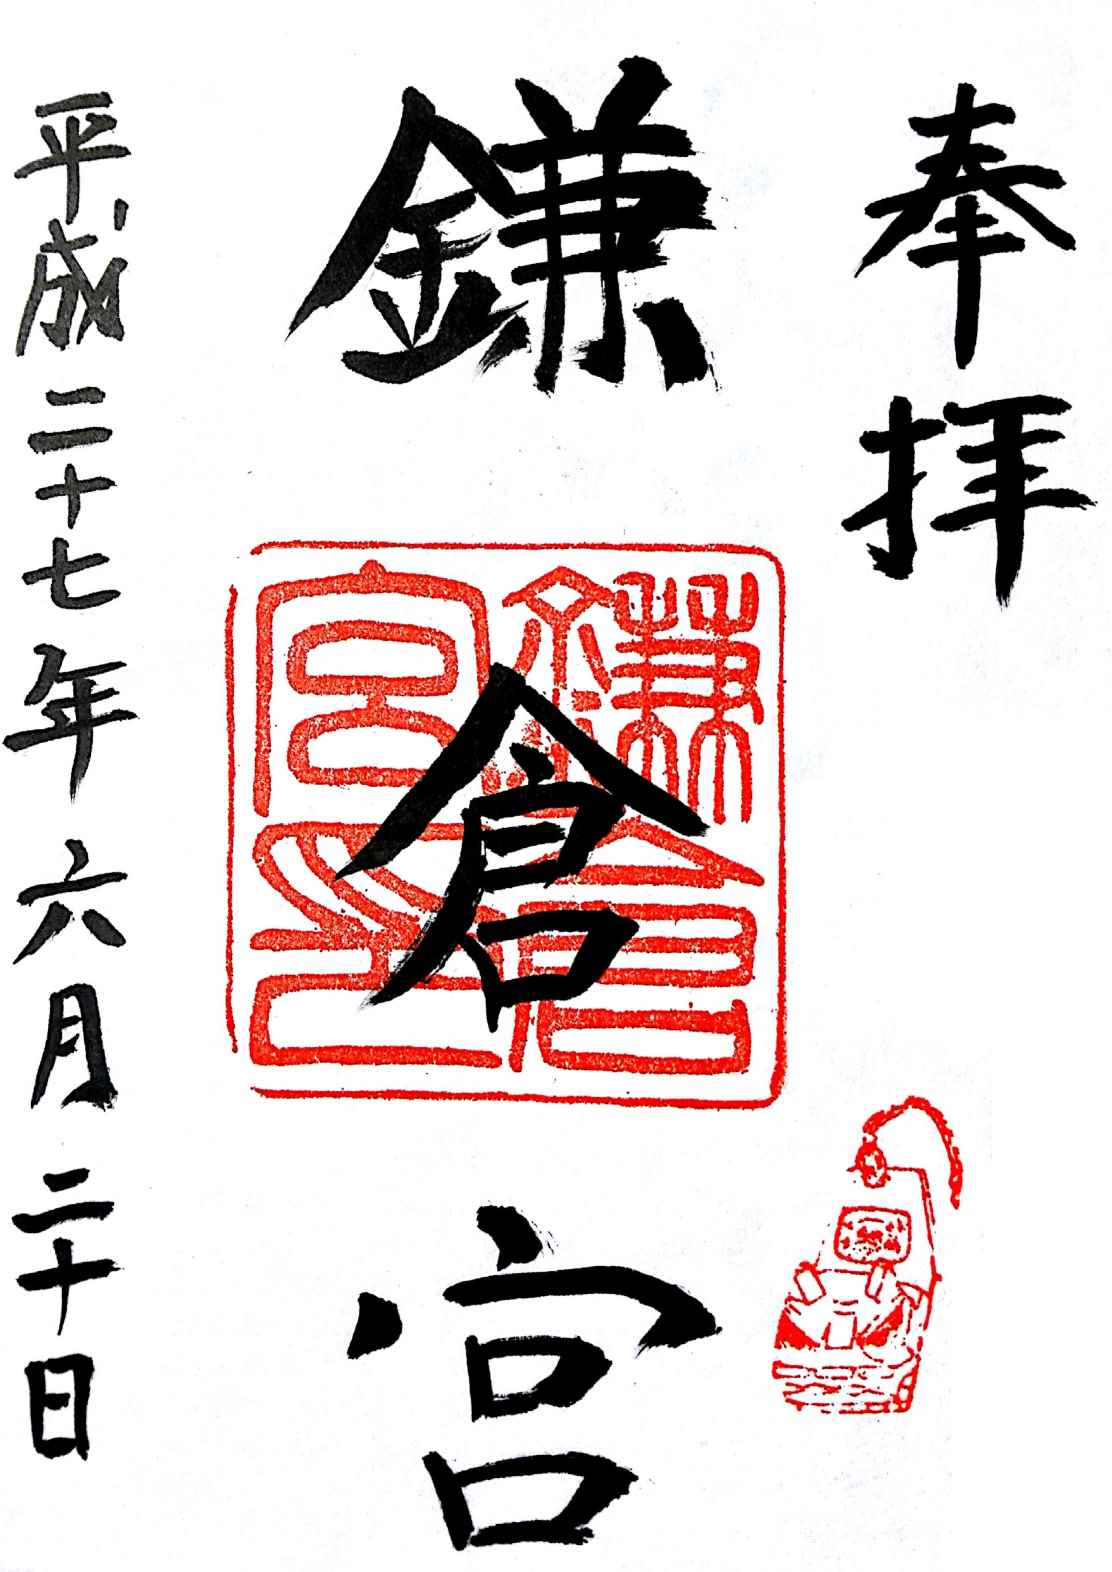 奉拝
鎌倉宮
鎌倉宮印
平成二十七年六月二十日